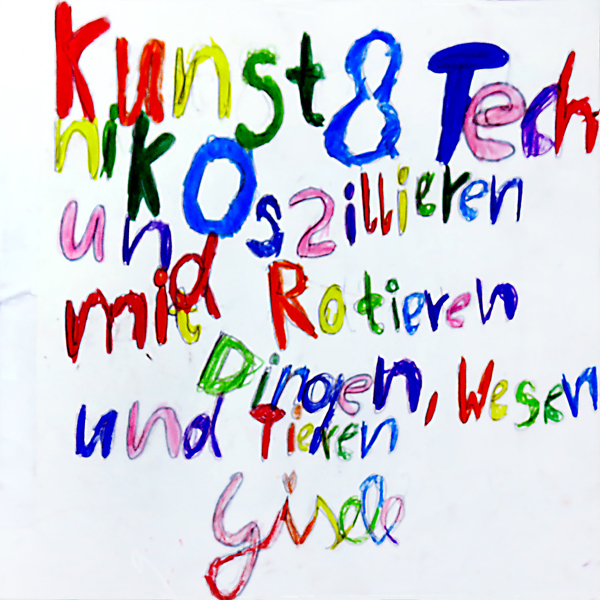 Kunst & Tech
nik Oszillieren
und Rotieren
mit Dingen, Wesen
und Tieren
Gisele